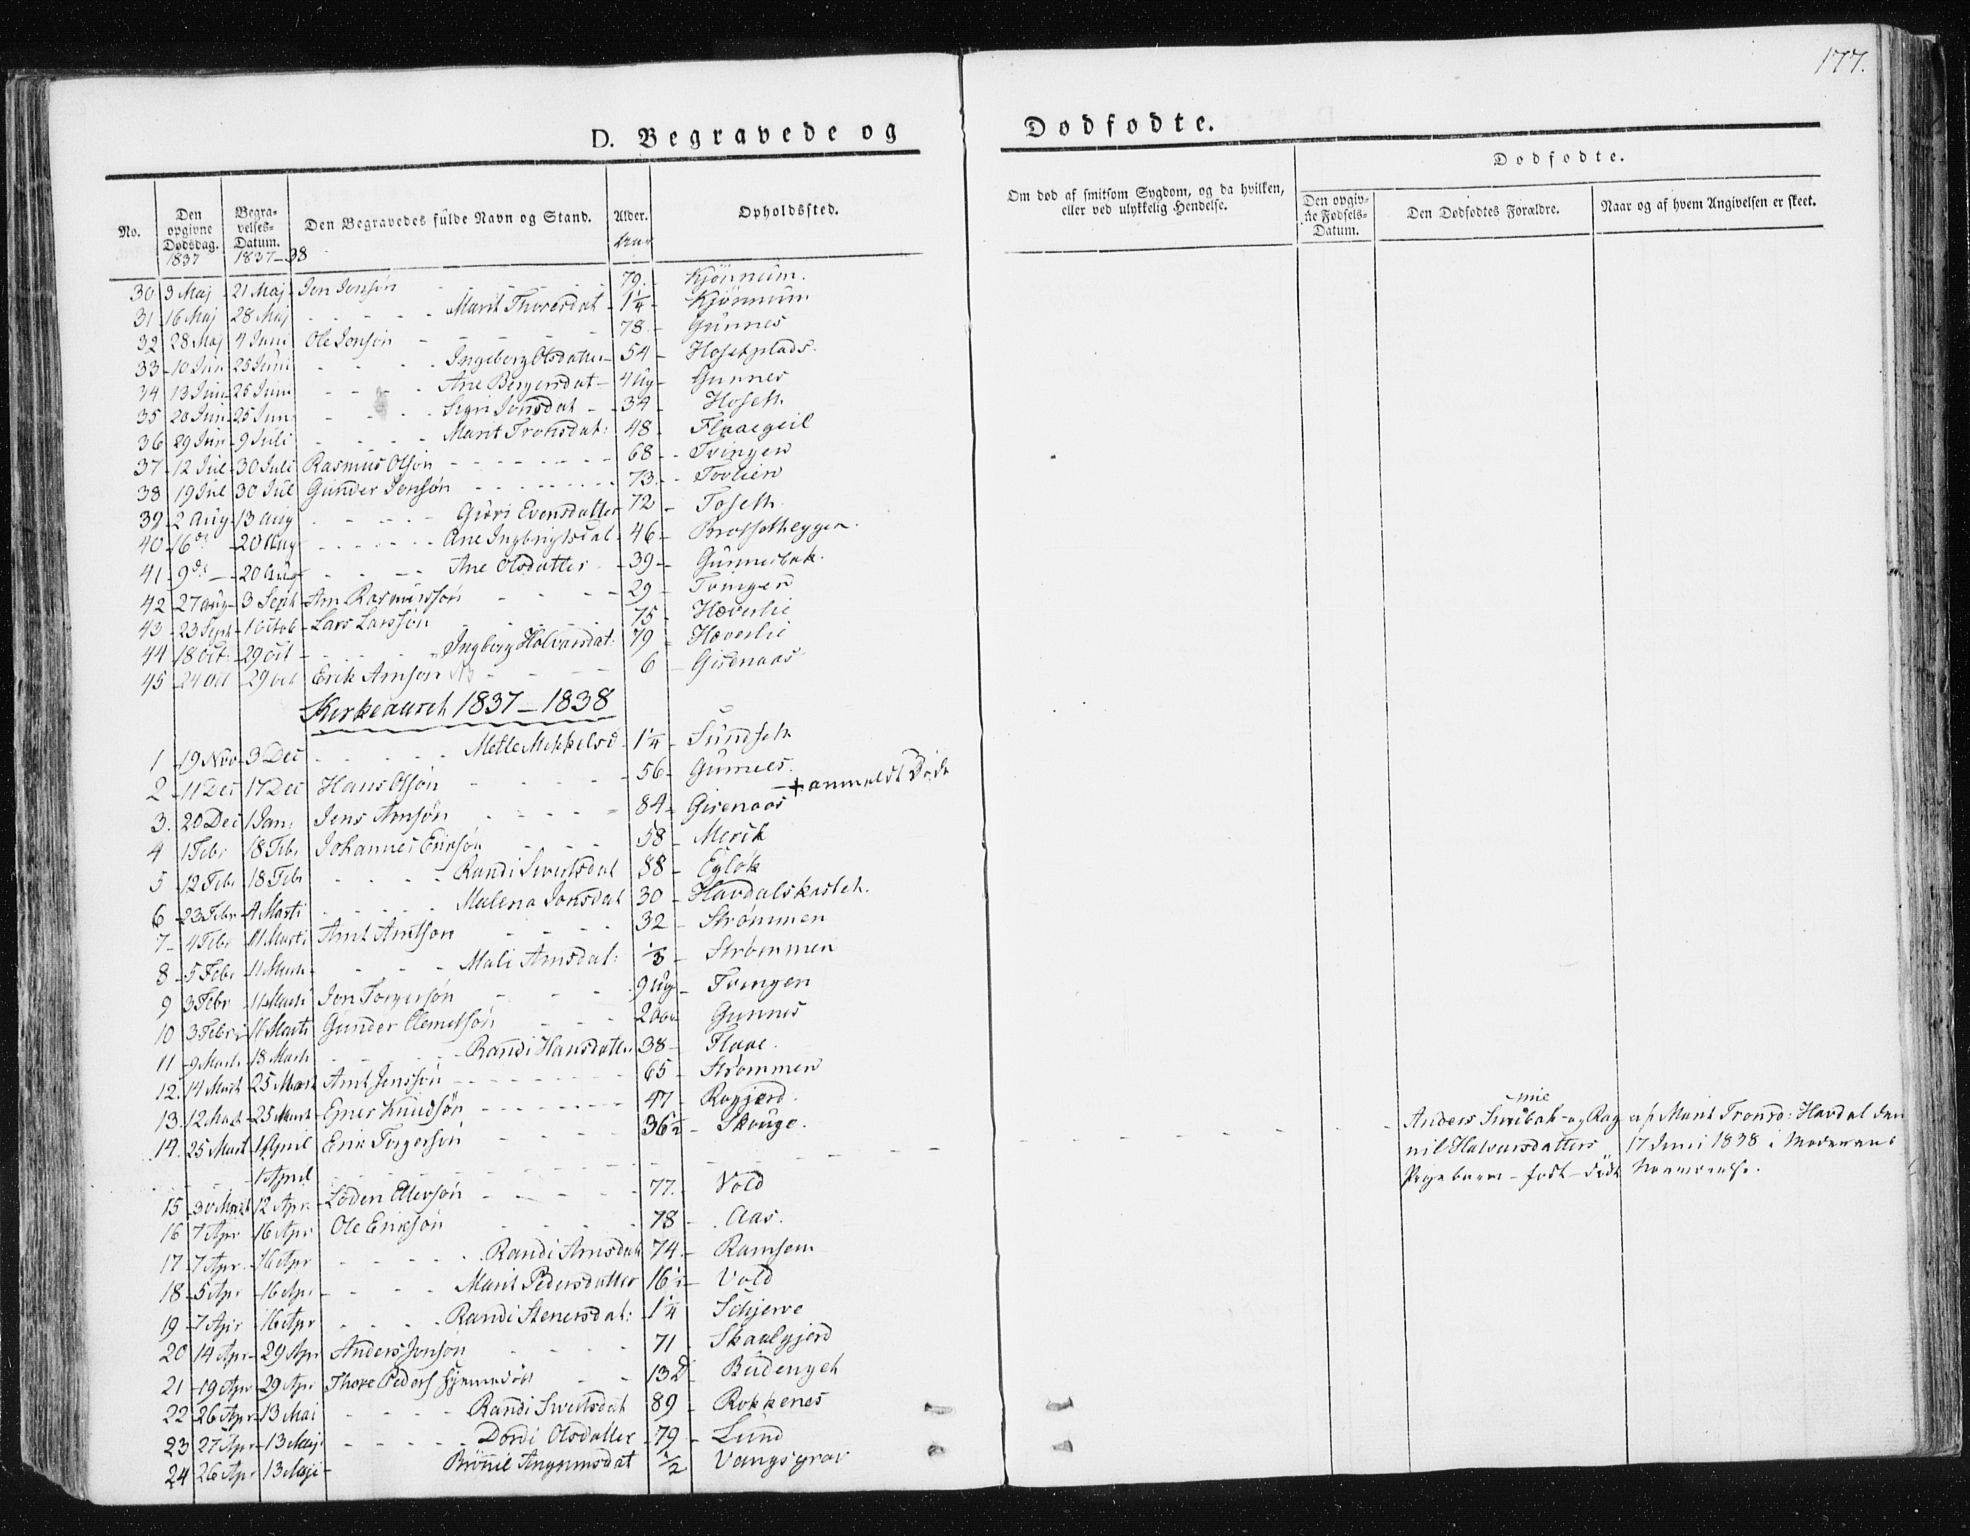 177.
D. Begravede og Dødfødte.
No. Den opgivne Dødsdag. 1837 Begravelses-Datum. 1837-38 Den Begravedes fulde Navn og Stand. Alder. Opholdssted.
Om død af smitsom Sygdom, og da hvilken, eller ved ulykkelig Hendelse.
Dødfødte.
Den opgivne Fødsels-Datum. Den Dødfødtes Forældre. Naar og af hvem Angivelsen er skeet.
30 3 Maj 21 Maj Jon Jonsøn 79
31 16 Maj 28 Maj Marit Thoresdat 1¼
32 28 Maj 4 Juni Ole Jonsøn 78 Gunnes
33 10 Jun 25 Juni Ingeberg Olsdatter 54 Hosetplads.
34 13 Juni 25 Juni Ane Bergersdat 4 Ug Gunnes
35 20 Jun 25 Jun Sigri Jonsdat 34 Hoseth
36 29 Jun 9 Juli Marit Tronsdat: 48 Flaaegeil
37 12 Jul 30 Juli Rasmus Olsøn 68 Tvingen
38 19 Jul 30 Jul Gunder Jonsøn 73
39 2 Aug 13 Aug Guri Evensdatter 72 Toseth
40 16 20 Aug Ane Ingbrigtsdat 46
41 9 20 Aug Ane Olsdatter 39 Gunnesbak.
42 27 Aug 3 Sept Arn Rasmussøn 29 Tvingen
43 23 Sept 1 Octob Lars Larssøn 75 Hæverlie
44 18 Oct. 29 Oct Ingberg Halvarsdat: 79 Hæverlie
45 24 Oct 29 Oct Erik Arnsøn 6 Gisenaas
Kirkeaaret 1837-1838
1 19 Nov 3 Dec Mette Mikkelsd 1¼ Sundseth
2 11 Dec 17 Dec Hans Olsøn 56 Gunnes.
3. 20 Dec 1 Jan. Jens Arnsøn 84 Gisenaas + anmeldt
4 1 Febr 18 Febr Johannes Eriksøn 58 Merik
5 12 Febr 18 Febr Randi Sivertsdat 88
6 23 Febr 4 Marti Malena Jonsdat 30
7 4 Febr 11 Marti Arnt Arntsøn 32 Strømmen
8 5 Febr 11 Marti Mali Arnsdat: ⅓ Strømmen
9 3 Febr 11 Marti Jon Torgersøn 9 Ug Tvingen
10 3 Febr 11 Marti Gunder Clemetsøn 2 Gunnes
11 9 Marti 18 Marti Randi Hansdatter 38 Flaae.
12. 14 Mart 25 Mart Arnt Jenssøn 65 Strømmen
13. 12 Mart 25 Mart Ejner Knudsøn 47
14. 25 Mart 1 April Erik Torgersøn 36½ Skouge.
1 April
Anders og Rag
nil Halvarsdatters
Pigebarn - født - død
af Marit Tronsd: Havdal den
17 Juni 1838 i Moderens
Nærværelse.
15 30 Mart 12 Apr. Loden Ellevsøn 77. Vold
16 7 Apr 16 Apr Ole Eriksøn 78 Aas.
17 7 Apr. 16 Apr Randi Arnsdat 74 Ramsem
18 5 Apr 16 Apr Marit Pedersdatter 16½ Vold
19 7 Apr 16 Apr Randi Stenersdat: 1¼ Schjerve
20 14 Apr 29 Apr Anders Jonsøn 71 Skaalgjerd
21 19 Apr 29 Apr Thore Peders 13 D
22 26 Apr 13 Mai Randi Sivertsdat 89 Rokkenes
23 27 Apr 13 Maji Dordi Olsdatter 79 Lund
24 26 Apr 13 Maji ½ Vangsgrav